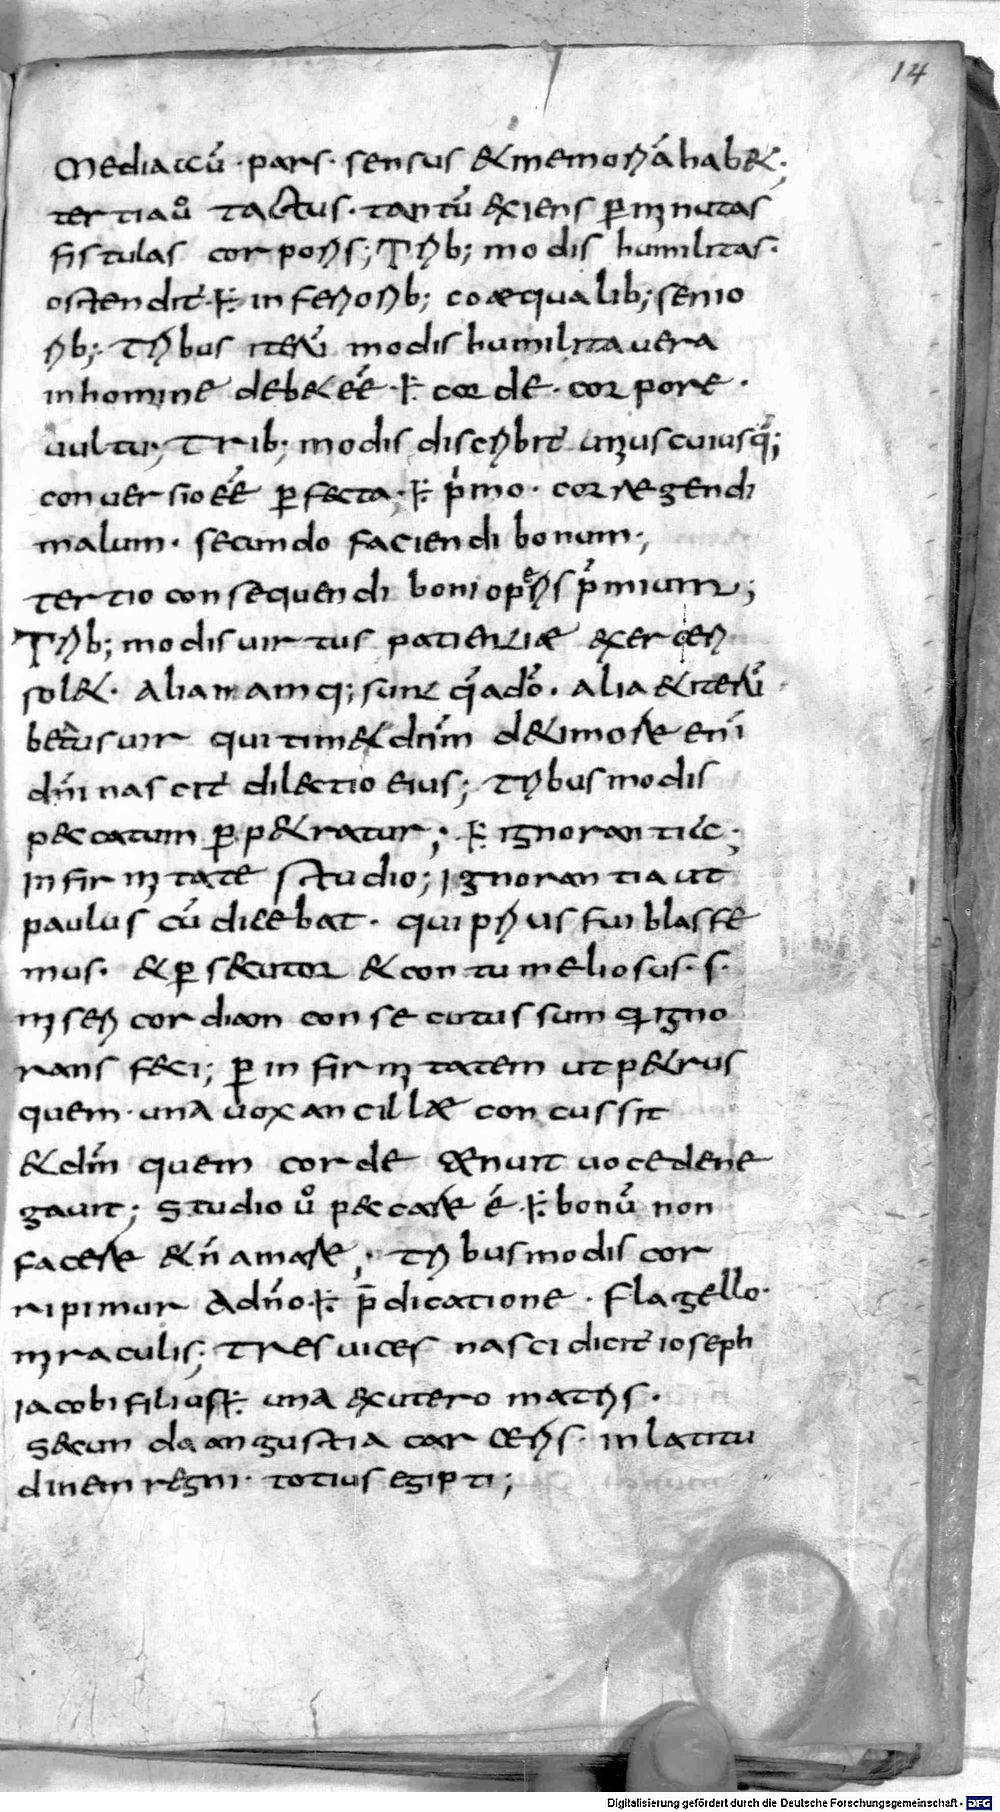 14
Mediaccū · pars · sensus & memoriā hab&;
tertia uº tactus · tantū exiens p̲ minutas
fistulas corporis; Trib; modis humilitas ·
ostendit̄ · ÷ inferiorib; coæqualib; senio
rib; · Tribus iterū modis humilita uera
in homine deb& éé ÷ corde · corpore ·
uultu; Trib; modis discribit̄ unus cuiusq̄;
conuersio éé p̲fecta · ÷ p̍mo · corrægendi
malum · secundo faciendi bonum ·,
tertio consequendi boni operis p̍mium;
Trib; modis uirtus patientiæ exerceri
sol& · alia namq; sunt q̄ a dō · alia & iterū
beatus uir qui tim& dnm̄ d& imore enī
dn̄i nascit̄ dilectio eius; tribus modis
peccatum p̲p&ratur; ÷ ignorantiæ ·,
infirmitate studio; ignorantia ut
paulus cū dicebat · qui prius fui blasfe
mus · & p̲secutor & contumeliosus · s ·
misericordiam consecutus sum q̲ igno
rans feci; p̲ infirmitatem ut p&rus
quem · una uox ancillæ concussit
& dn̄m quem corde tenuit uoce dene
gauit; studio uº peccare é ÷ bonū non
facere & n̄ amare; tribus modis cor
ripimur a dn̄o ÷ p̄dicatione · flagello ·
miraculis; Tres uices nasci dicit̄ ioseph
iacobi filius ÷ una ex utero matris ·
secunda angustia carceris · in latitu
dinem regni · totius egipti;
Digitalisierung gefördert durch die Deutsche Forschungsgemeinschaft - DFG